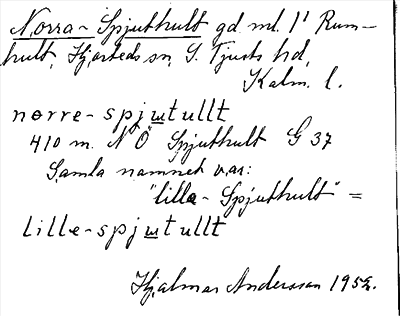 Norra-Spjuthult gd ml. 1¹ Rum-
hult, Hjorteds sn, S. Tjusts hd,
Kalm. l.
norre-spjɯtullt
410 m. N Ö Spjuthult G 37
Gamla namnet var:
"lilla-Spjuthult" =
lille-spjɯtullt
Hjalmar Andersson 1952.